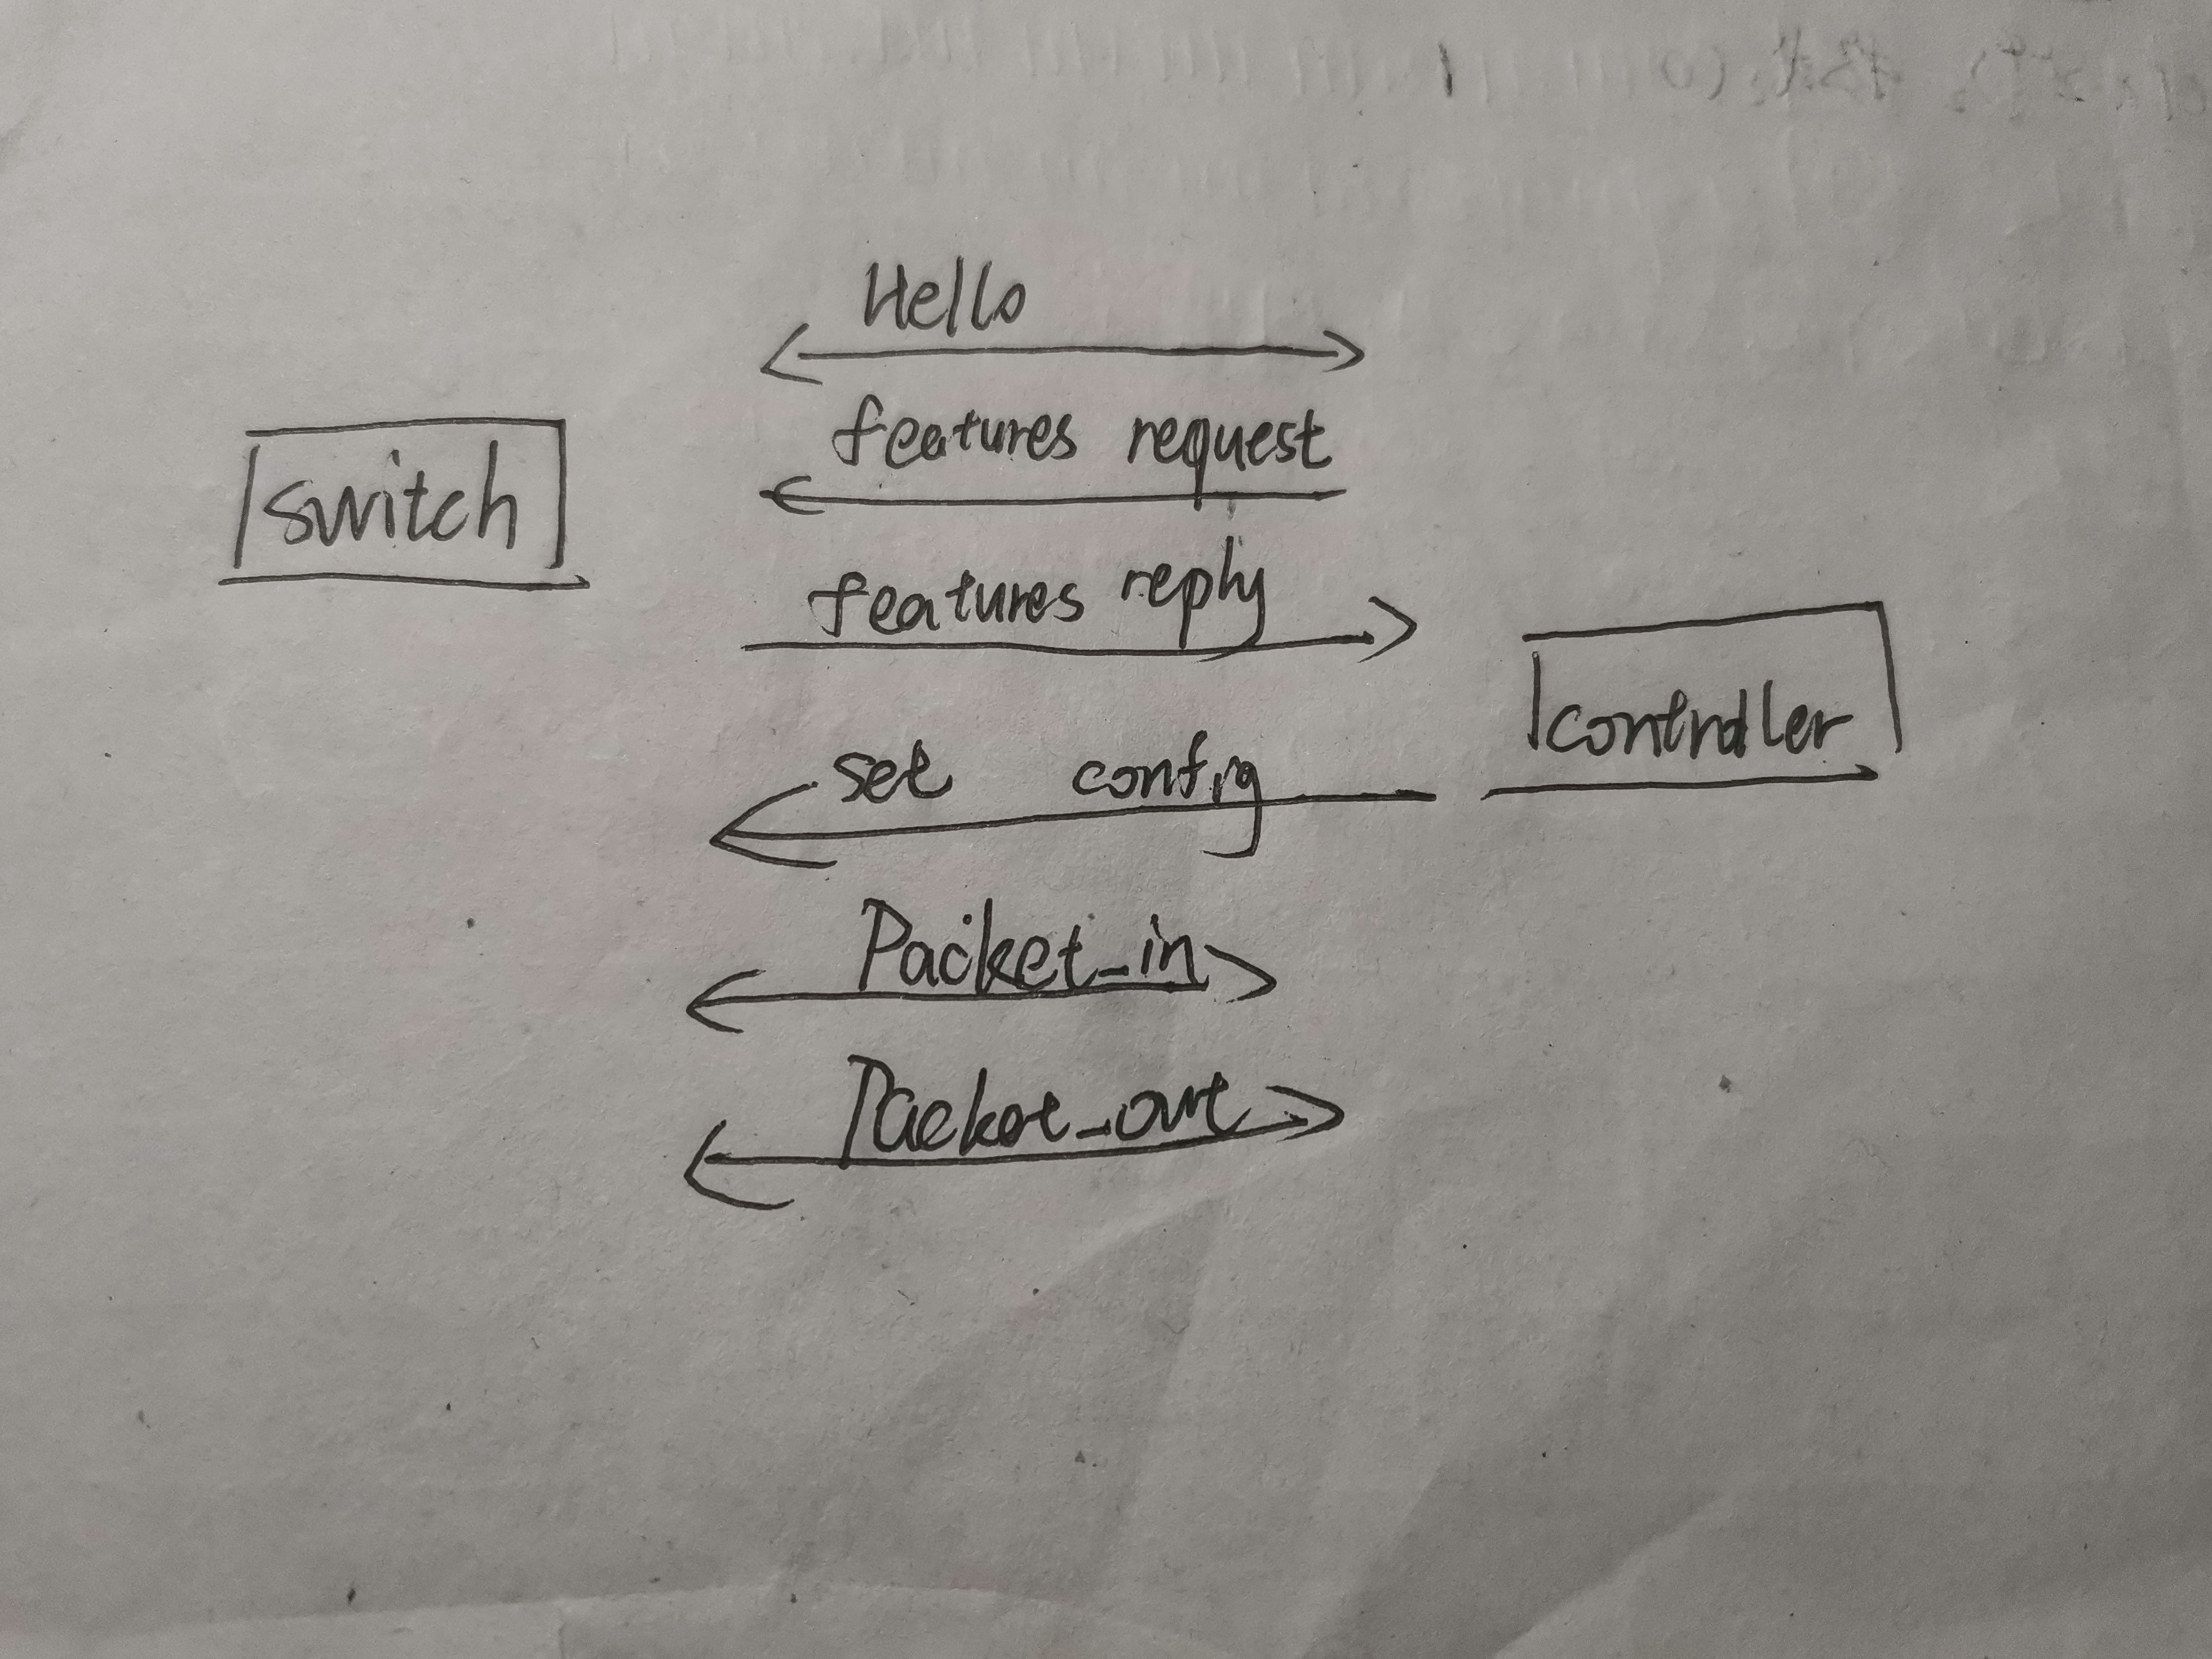 Hello
features request
switch
features reply
controller
set config
Packet_in
Packet_out